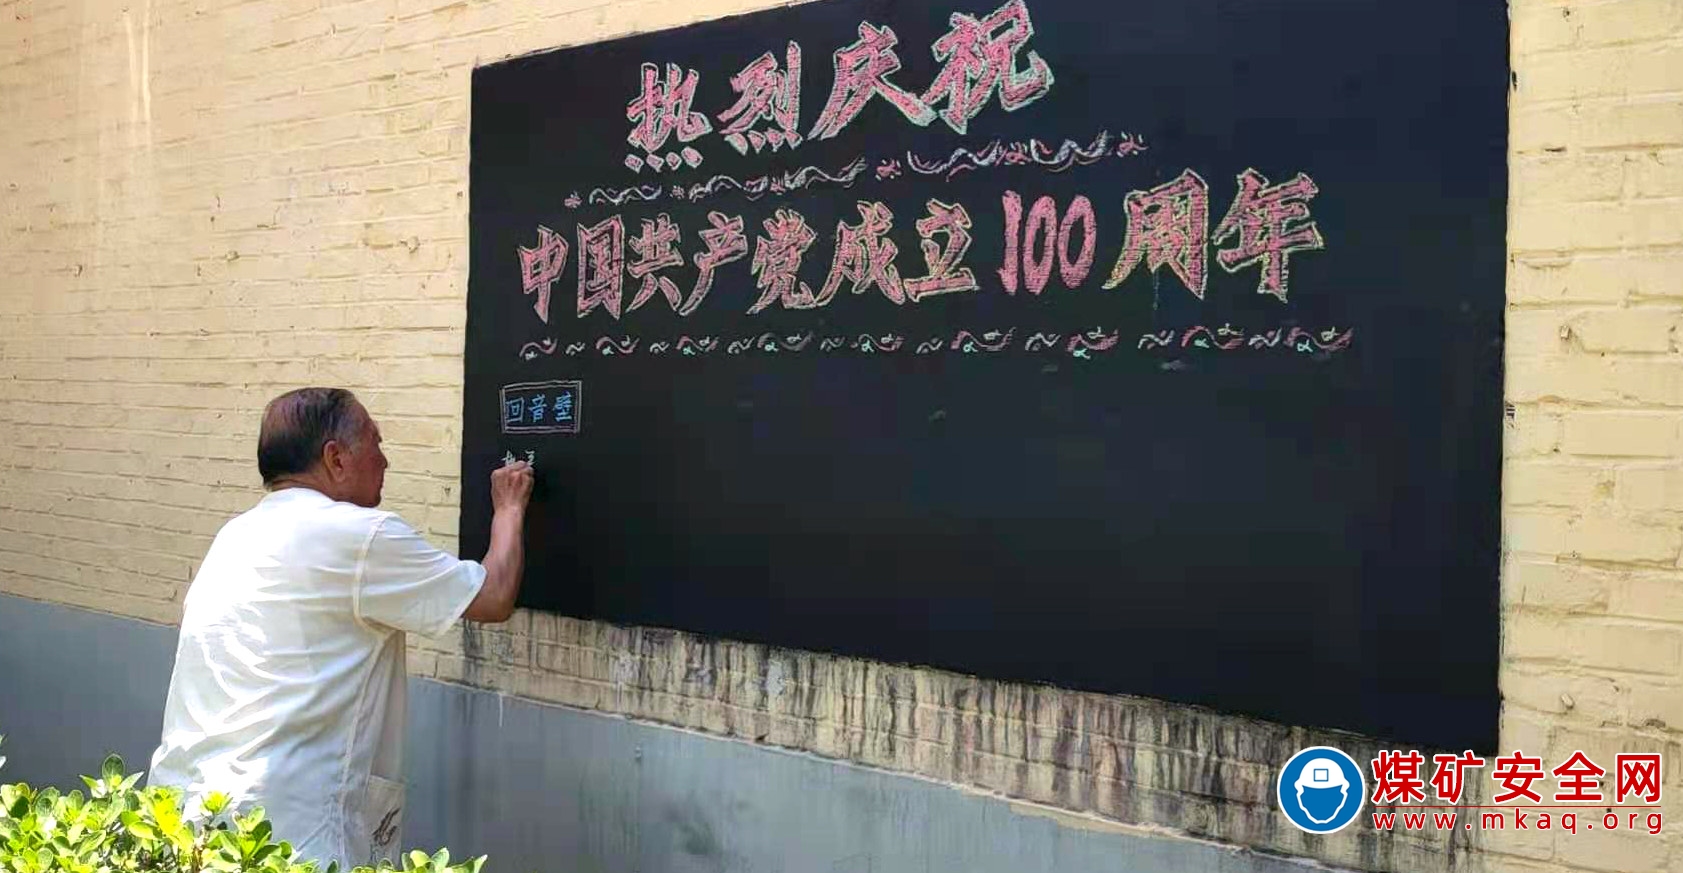 热烈庆祝
中国共产党成立100周年
回音壁
煤矿安全网
www.mkaq.org